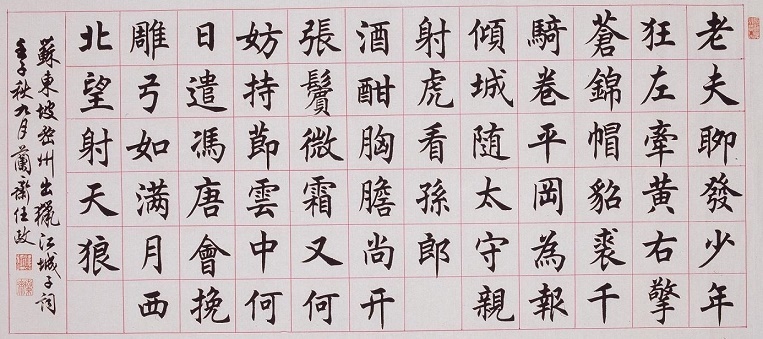 老夫聊發少年
狂左牽黄右擎
蒼錦帽貂裘千
騎卷平岡為報
傾城隨太守親
射虎看孫郎
酒酣胸膽尚开
張鬢微霜又何
妨持節雲中何
日遣馮唐會挽
雕弓如满月西
北望射天狼
蘇東坡密州出獵江城子詞
壬子秋九月蘭齋任政